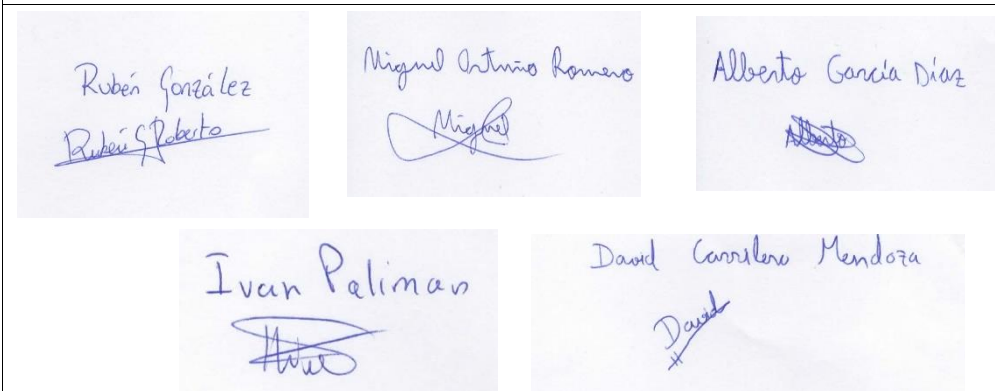 Rubén González
Rubén G Roberto
Miguel Ortuño Romero
Miguel
Alberto García Díaz
Alberto
Ivan Paliman
David Carrilero Mendoza
David